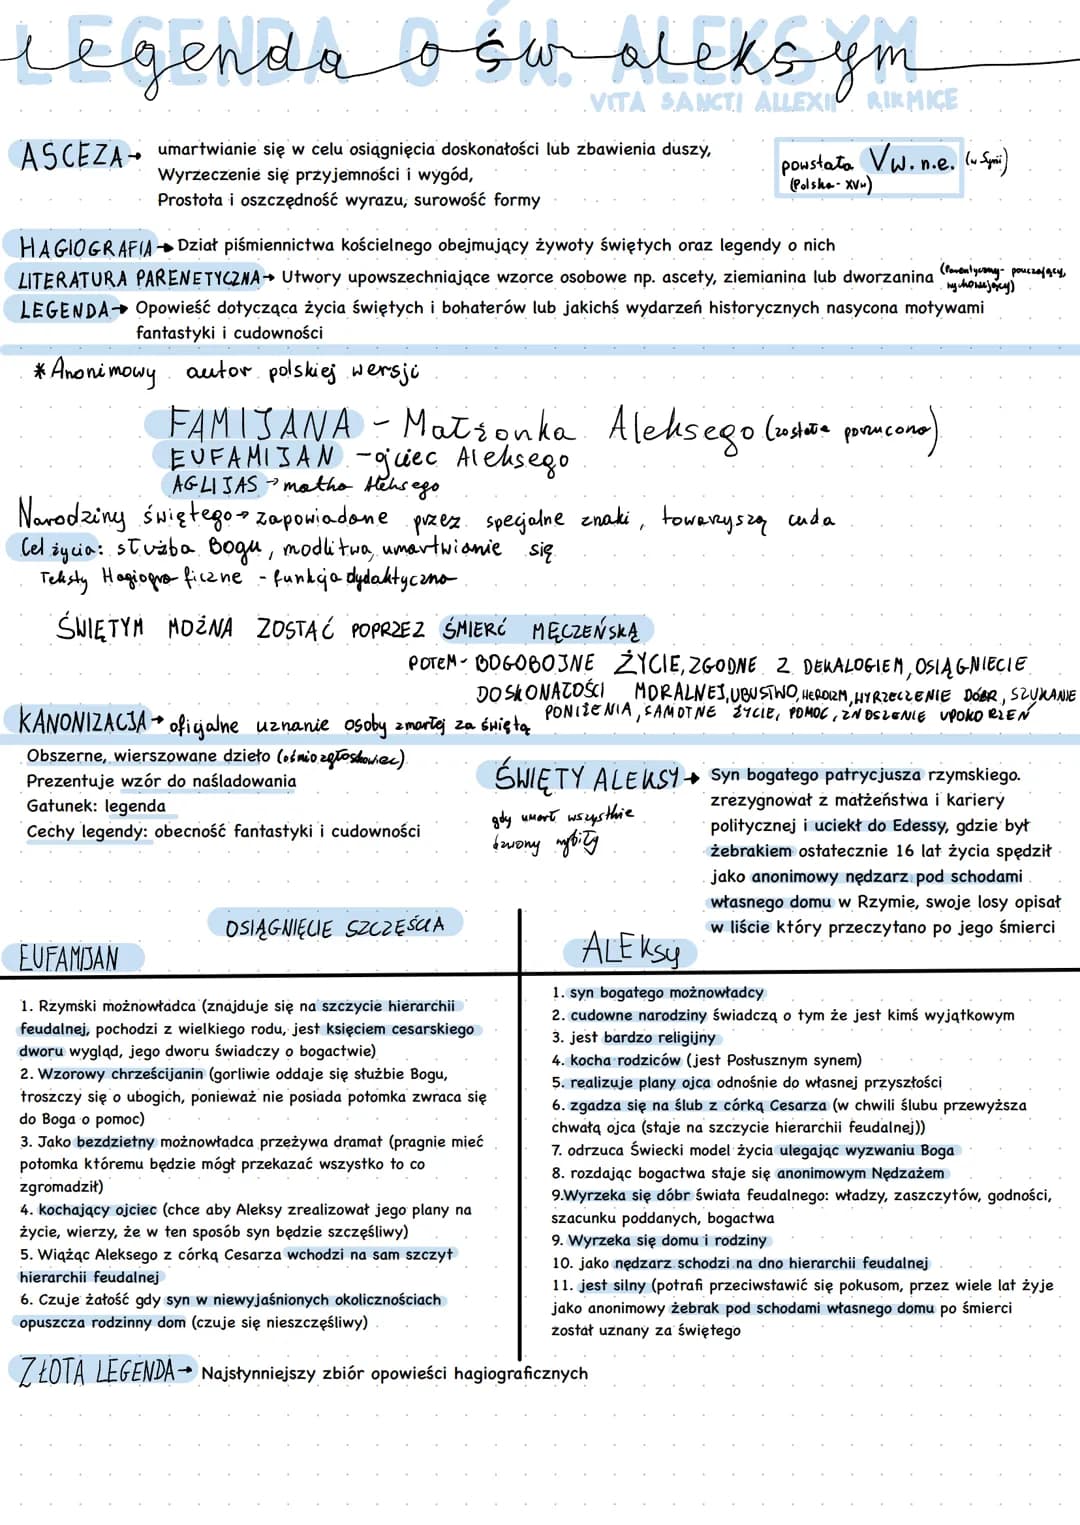 Legenda o św. aleksym
LEGENDA O ŚW. ALEKSYM
VITA SANCTI ALLEXII RIKMICE
ASCEZA→ umartwianie się w celu osiągnięcia doskonałości lub zbawienia duszy,
Wyrzeczenie się przyjemności i wygód,
Prostota i oszczędność wyrazu, surowość formy
powstała Vw. n.e. (w Syrii)
(Polska - XVw)
HAGIOGRAFIA→ Dział piśmiennictwa kościelnego obejmujący żywoty świętych oraz legendy o nich
LITERATURA PARENETYCZNA→ Utwory upowszechniające wzorce osobowe np. ascety, ziemianina lub dworzanina (Parenetyczny- pouczający,
wychowujący)
LEGENDA→ Opowieść dotycząca życia świętych i bohaterów lub jakichś wydarzeń historycznych nasycona motywami
fantastyki i cudowności
* Anonimowy autor polskiej wersji
FAMIJANA - Małżonka Aleksego (została porzucona)
EUFAMIJAN - ojciec Aleksego
AGLIJAS → matka Aleksego
Narodziny świętego → zapowiadane przez specjalne znaki, towarzyszą cuda
Cel życia: służba Bogu, modlitwa, umartwianie się
Teksty Hagiograficzne - funkcja dydaktyczna
ŚWIĘTYM MOŻNA ZOSTAĆ POPRZEZ ŚMIERĆ MĘCZEŃSKĄ
POTEM - BOGOBOJNE ŻYCIE, ZGODNE Z DEKALOGIEM, OSIĄGNIECIE
DOSKONAŁOŚCI MORALNEJ, UBUSTWO, HEROIZM, WYRZECZENIE DÓBR, SZUKANIE
PONIŻENIA, SAMOTNE ŻYCIE, POMOC, ZNOSZENIE UPOKORZEŃ
KANONIZACJA → oficjalne uznanie osoby zmarłej za świętą
Obszerne, wierszowane dzieło (ośmiozgłoskowiec)
Prezentuje wzór do naśladowania
Gatunek: legenda
Cechy legendy: obecność fantastyki i cudowności
ŚWIĘTY ALEKSY→ Syn bogatego patrycjusza rzymskiego.
zrezygnował z małżeństwa i kariery
politycznej i uciekł do Edessy, gdzie był
żebrakiem ostatecznie 16 lat życia spędził
jako anonimowy nędzarz pod schodami
własnego domu w Rzymie, swoje losy opisał
w liście który przeczytano po jego śmierci
gdy umarł wszystkie
dzwony wybiły
OSIĄGNIĘCIE SZCZĘŚCIA
EUFAMIJAN
1. Rzymski możnowładca (znajduje się na szczycie hierarchii
feudalnej, pochodzi z wielkiego rodu, jest księciem cesarskiego
dworu wygląd, jego dworu świadczy o bogactwie)
2. Wzorowy chrześcijanin (gorliwie oddaje się służbie Bogu,
troszczy się o ubogich, ponieważ nie posiada potomka zwraca się
do Boga o pomoc)
3. Jako bezdzietny możnowładca przeżywa dramat (pragnie mieć
potomka któremu będzie mógł przekazać wszystko to co
zgromadził)
4. kochający ojciec (chce aby Aleksy zrealizował jego plany na
życie, wierzy, że w ten sposób syn będzie szczęśliwy)
5. Wiążąc Aleksego z córką Cesarza wchodzi na sam szczyt
hierarchii feudalnej
6. Czuje żałość gdy syn w niewyjaśnionych okolicznościach
opuszcza rodzinny dom (czuje się nieszczęśliwy)
ALEksy
1. syn bogatego możnowładcy
2. cudowne narodziny świadczą o tym że jest kimś wyjątkowym
3. jest bardzo religijny
4. kocha rodziców (jest Posłusznym synem)
5. realizuje plany ojca odnośnie do własnej przyszłości
6. zgadza się na ślub z córką Cesarza (w chwili ślubu przewyższa
chwałą ojca (staje na szczycie hierarchii feudalnej))
7. odrzuca Świecki model życia ulegając wyzwaniu Boga
8. rozdając bogactwa staje się anonimowym Nędzażem
9.Wyrzeka się dóbr świata feudalnego: władzy, zaszczytów, godności,
szacunku poddanych, bogactwa
9. Wyrzeka się domu i rodziny
10. jako nędzarz schodzi na dno hierarchii feudalnej
11. jest silny (potrafi przeciwstawić się pokusom, przez wiele lat żyje
jako anonimowy żebrak pod schodami własnego domu po śmierci
został uznany za świętego
ZŁOTA LEGENDA→ Najsłynniejszy zbiór opowieści hagiograficznych